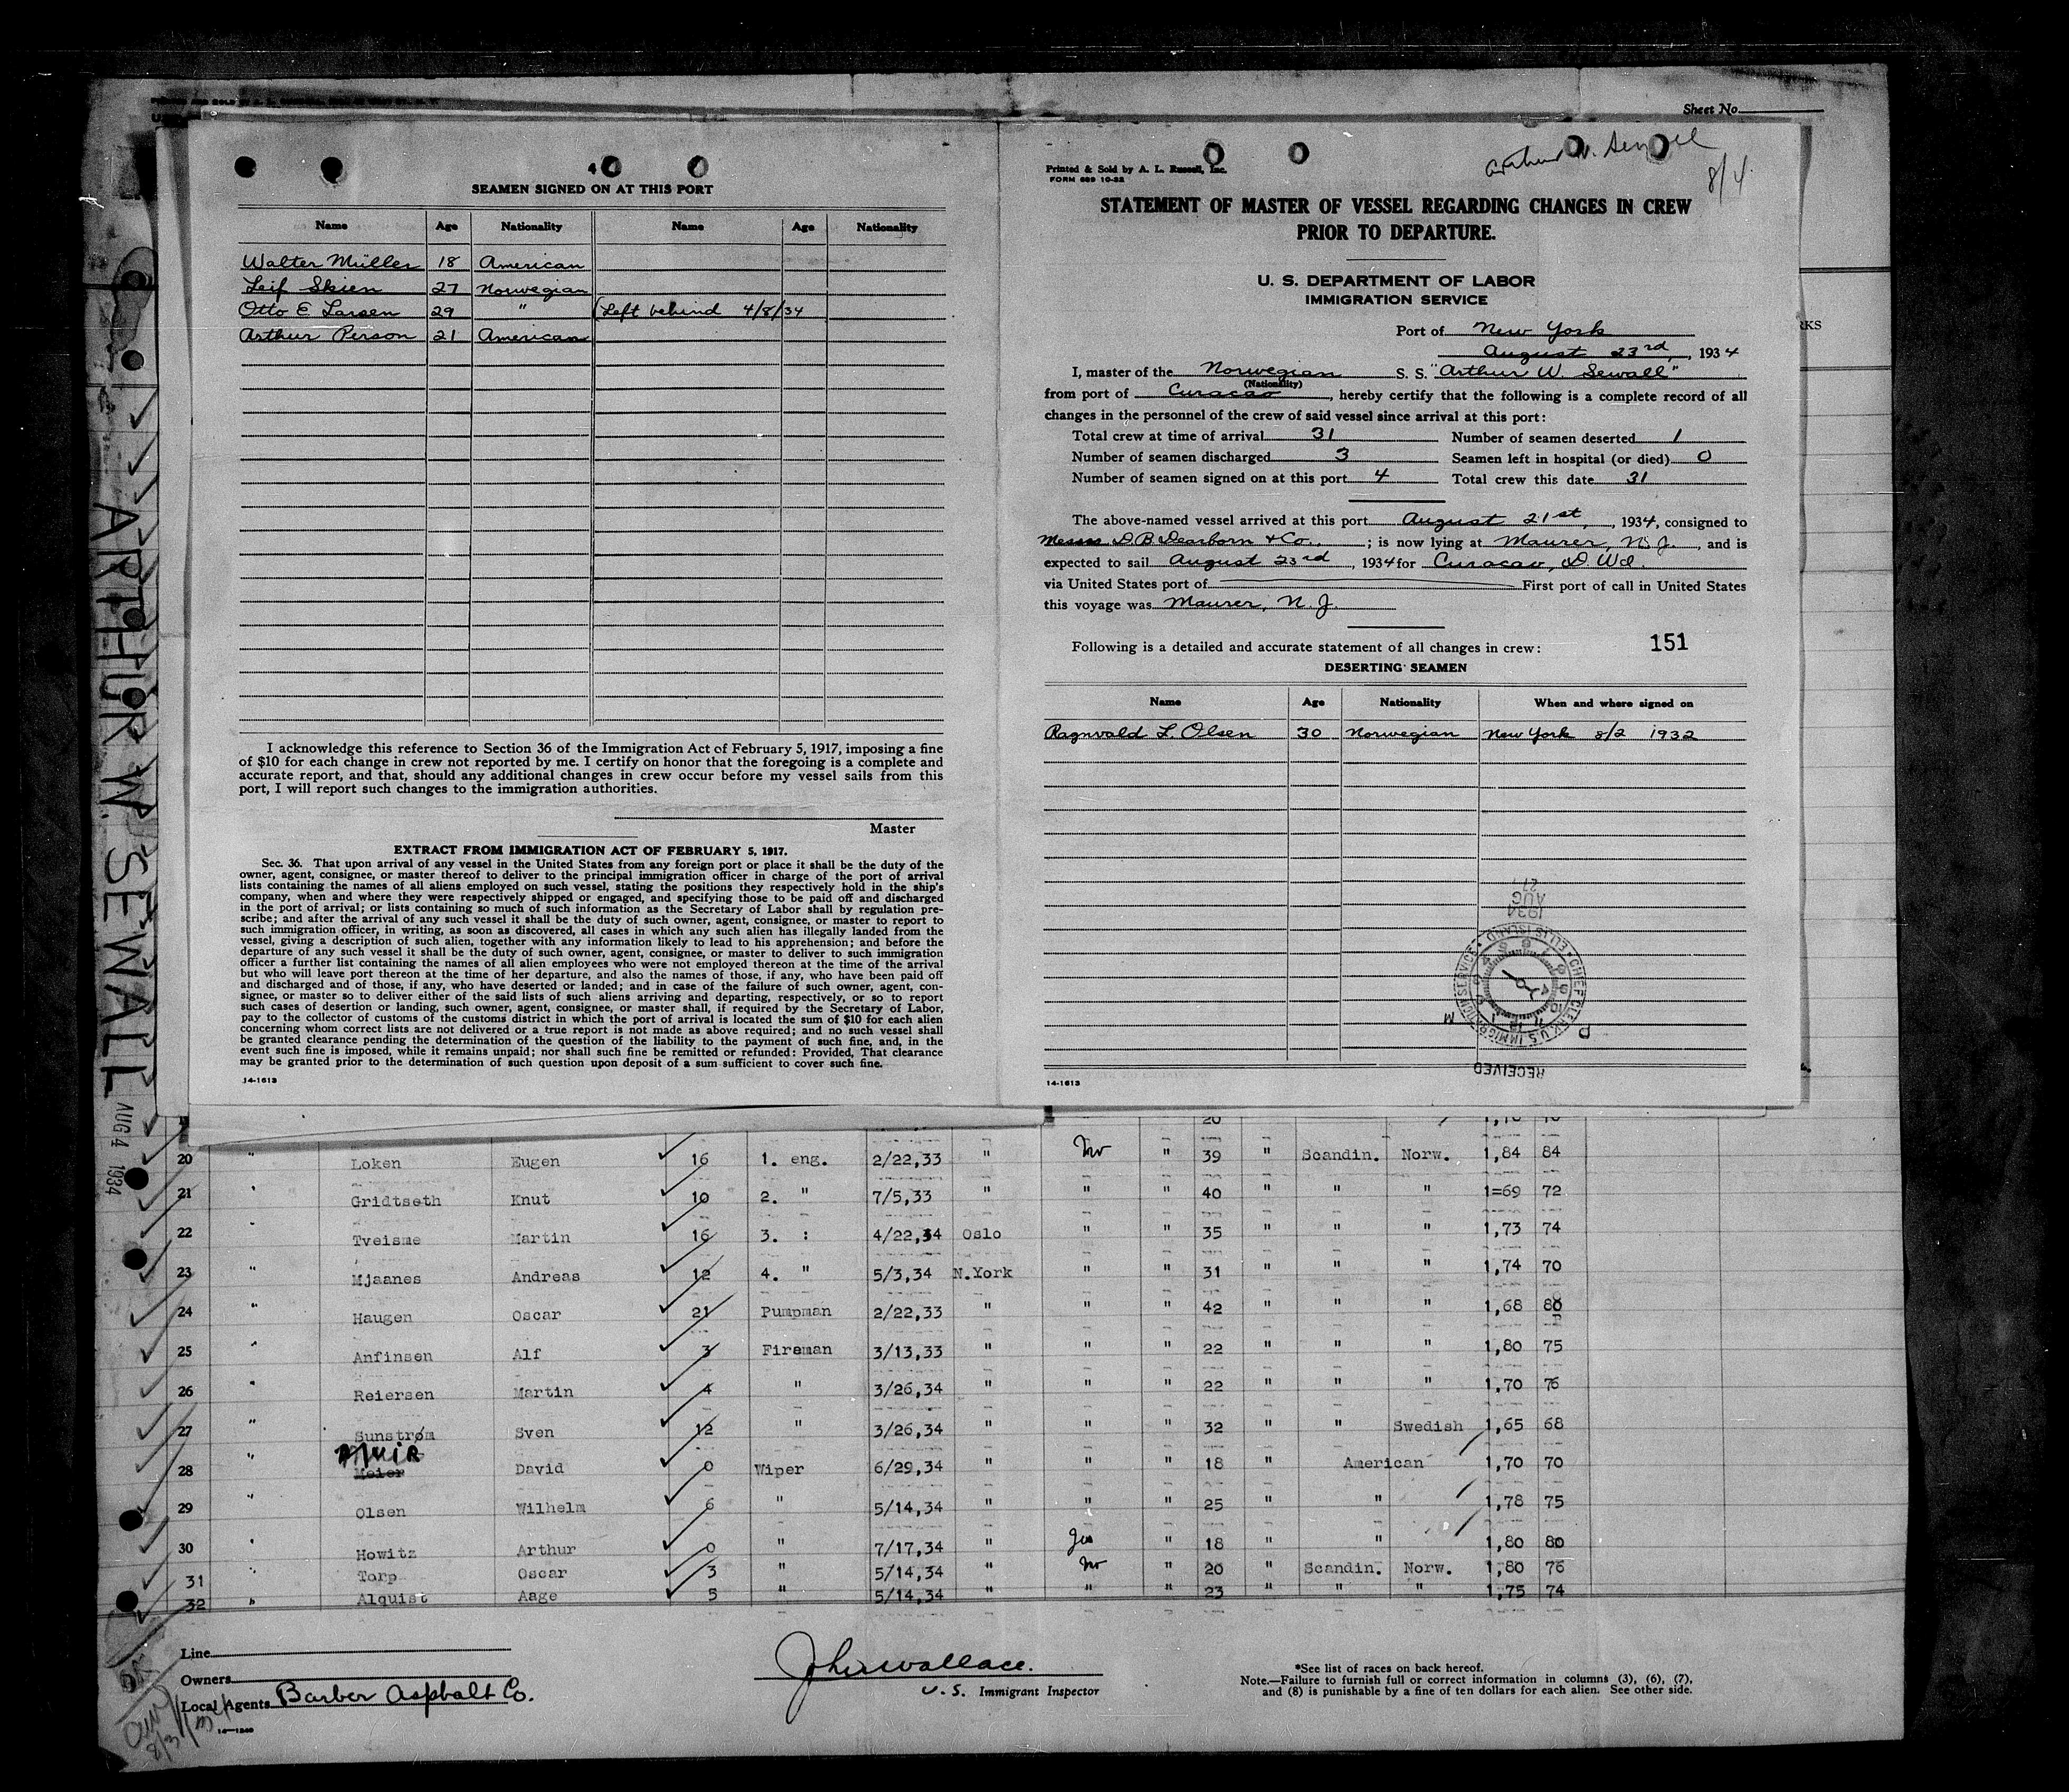 Sheet No.
4
SEAMEN SIGNED ON AT THIS PORT
Name Age Nationality Name Age Nationality
Walter Müller 18 American
Leif Skien 27 Norwegian
Otto E Larsen 29 " (Left behind 4/8/34
Arthur Person 21 American
I acknowledge this reference to Section 36 of the Immigration Act of February 5, 1917, imposing a fine
of $10 for each change in crew not reported by me. I certify on honor that the foregoing is a complete and
accurate report, and that, should any additional changes in crew occur before my vessel sails from this
port, I will report such changes to the immigration authorities.
Master
EXTRACT FROM IMMIGRATION ACT OF FEBRUARY 5, 1917.
Sec. 36. That upon arrival of any vessel in the United States from any foreign port or place it shall be the duty of the
owner, agent, consignee, or master thereof to deliver to the principal immigration officer in charge of the port of arrival
lists containing the names of all aliens employed on such vessel, stating the positions they respectively hold in the ship's
company, when and where they were respectively shipped or engaged, and specifying those to be paid off and discharged
in the port of arrival; or lists containing so much of such information as the Secretary of Labor shall by regulation pre-
scribe; and after the arrival of any such vessel it shall be the duty of such owner, agent, consignee, or master to report to
such immigration officer, in writing, as soon as discovered, all cases in which any such alien has illegally landed from the
vessel, giving a description of such alien, together with any information likely to lead to his apprehension; and before the
departure of any such vessel it shall be the duty of such owner, agent, consignee, or master to deliver to such immigration
officer a further list containing the names of all alien employees who were not employed thereon at the time of the arrival
but who will leave port thereon at the time of her departure, and also the names of those, if any, who have been paid off
and discharged and of those, if any, who have deserted or landed; and in case of the failure of such owner, agent, con-
signee, or master so to deliver either of the said lists of such aliens arriving and departing, respectively, or so to report
such cases of desertion or landing, such owner, agent, consignee, or master shall, if required by the Secretary of Labor,
pay to the collector of customs of the customs district in which the port of arrival is located the sum of $10 for each alien
concerning whom correct lists are not delivered or a true report is not made as above required; and no such vessel shall
be granted clearance pending the determination of the question of the liability to the payment of such fine, and, in the
event such fine is imposed, while it remains unpaid; nor shall such fine be remitted or refunded: Provided, That clearance
may be granted prior to the determination of such question upon deposit of a sum sufficient to cover such fine.
14-1613
Arthur W. Sewall
8/4
Printed & Sold by A. L. Russell, Inc.
FORM 689 10-32
STATEMENT OF MASTER OF VESSEL REGARDING CHANGES IN CREW
PRIOR TO DEPARTURE.
U. S. DEPARTMENT OF LABOR
IMMIGRATION SERVICE
Port of New York
August 23rd, 1934
I, master of the Norwegian S. S. "Arthur W. Sewall"
(Nationality)
from port of Curacao, hereby certify that the following is a complete record of all
changes in the personnel of the crew of said vessel since arrival at this port:
Total crew at time of arrival 31 Number of seamen deserted 1
Number of seamen discharged 3 Seamen left in hospital (or died) 0
Number of seamen signed on at this port 4 Total crew this date 31
The above-named vessel arrived at this port August 21st, 1934, consigned to
Messrs D.B. Dearborn & Co.; is now lying at Maurer, N. J., and is
expected to sail August 23rd, 1934 for Curacao, D. W.I.
via United States port of First port of call in United States
this voyage was Maurer, N. J.
Following is a detailed and accurate statement of all changes in crew: 151
DESERTING SEAMEN
Name Age Nationality When and where signed on
Ragnvald L. Olsen 30 Norwegian New York 8/2 1932
RECEIVED
CHIEF CLERK U.S. IMMIGRATION SERVICE
ELLIS ISLAND
1934
AUG
27
P M
14-1613
ARTHUR W. SEWALL
AUG 4 1934
RKS
20 " Loken Eugen 16 1. eng. 2/22,33 " No " 39 " Scandin. Norw. 1,84 84
21 " Gridtseth Knut 10 2. " 7/5,33 " " " 40 " " " 1=69 72
22 " Tveisme Martin 16 3. : 4/22,34 Oslo " " 35 " " " 1,73 74
23 " Mjaanes Andreas 12 4. " 5/3,34 N.York " " 31 " " " 1,74 70
24 " Haugen Oscar 21 Pumpman 2/22,33 " " " 42 " " " 1,68 80
25 " Anfinsen Alf 3 Fireman 3/13,33 " " " 22 " " " 1,80 75
26 " Reiersen Martin 4 " 3/26,34 " " " 22 " " " 1,70 76
27 " Sunstrøm Sven 12 " 3/26,34 " " " 32 " " Swedish 1,65 68
MUIR
28 " Meier David 0 Wiper 6/29,34 " " " 18 " American 1,70 70
29 " Olsen Wilhelm 6 " 5/14,34 " " " 25 " " 1,78 75
30 " Howitz Arthur 0 " 7/17,34 " Yes " 18 " " 1,80 80
31 " Torp Oscar 3 " 5/14,34 " No " 20 " Scandin. Norw. 1,80 76
32 " Alquist Aage 5 " 5/14,34 " " " 23 " " " 1,75 74
Line
Owners
Local Agents Barber Asphalt Co.
14-1240
Jhnwallace.
U. S. Immigrant Inspector
*See list of races on back hereof.
Note.—Failure to furnish full or correct information in columns (3), (6), (7),
and (8) is punishable by a fine of ten dollars for each alien. See other side.